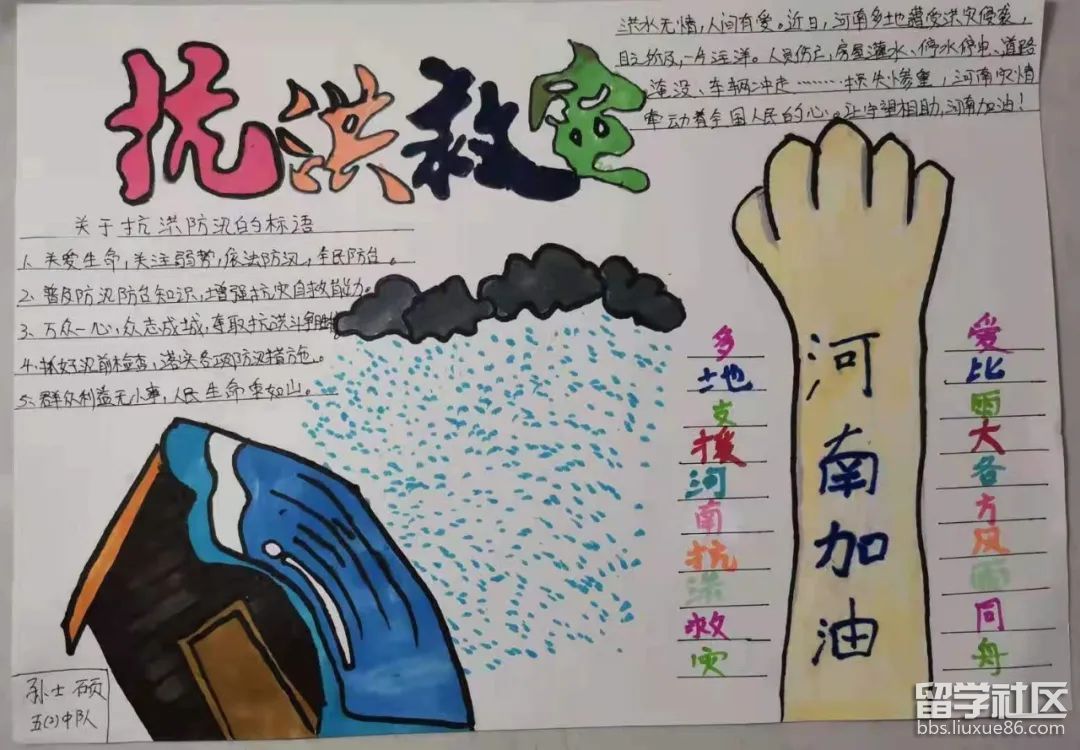 抗洪救灾
洪水无情,人间有爱。近日,河南多地遭受洪灾侵袭,
目之所及,一片汪洋。人员伤亡,房屋灌水、停水停电、道路
淹没、车辆冲走………损失惨重,河南灾情
牵动着全国人民的心。让守望相助,河南加油!
关于抗洪防汛的标语
1、关爱生命,关注弱势,依法防汛,全民防台。
2、普及防汛防台知识,增强抗灾自救能力。
3、万众一心,众志成城,夺取抗洪斗争胜
4、抓好汛前检查,落实各项防汛措施。
5、群众利益无小事,人民生命重如山。
多地支援河南抗洪救灾
河南加油
爱比雨大各方风雨同舟
孙士硕
五(2)中队
留学社区
bbs.liuxue86.com